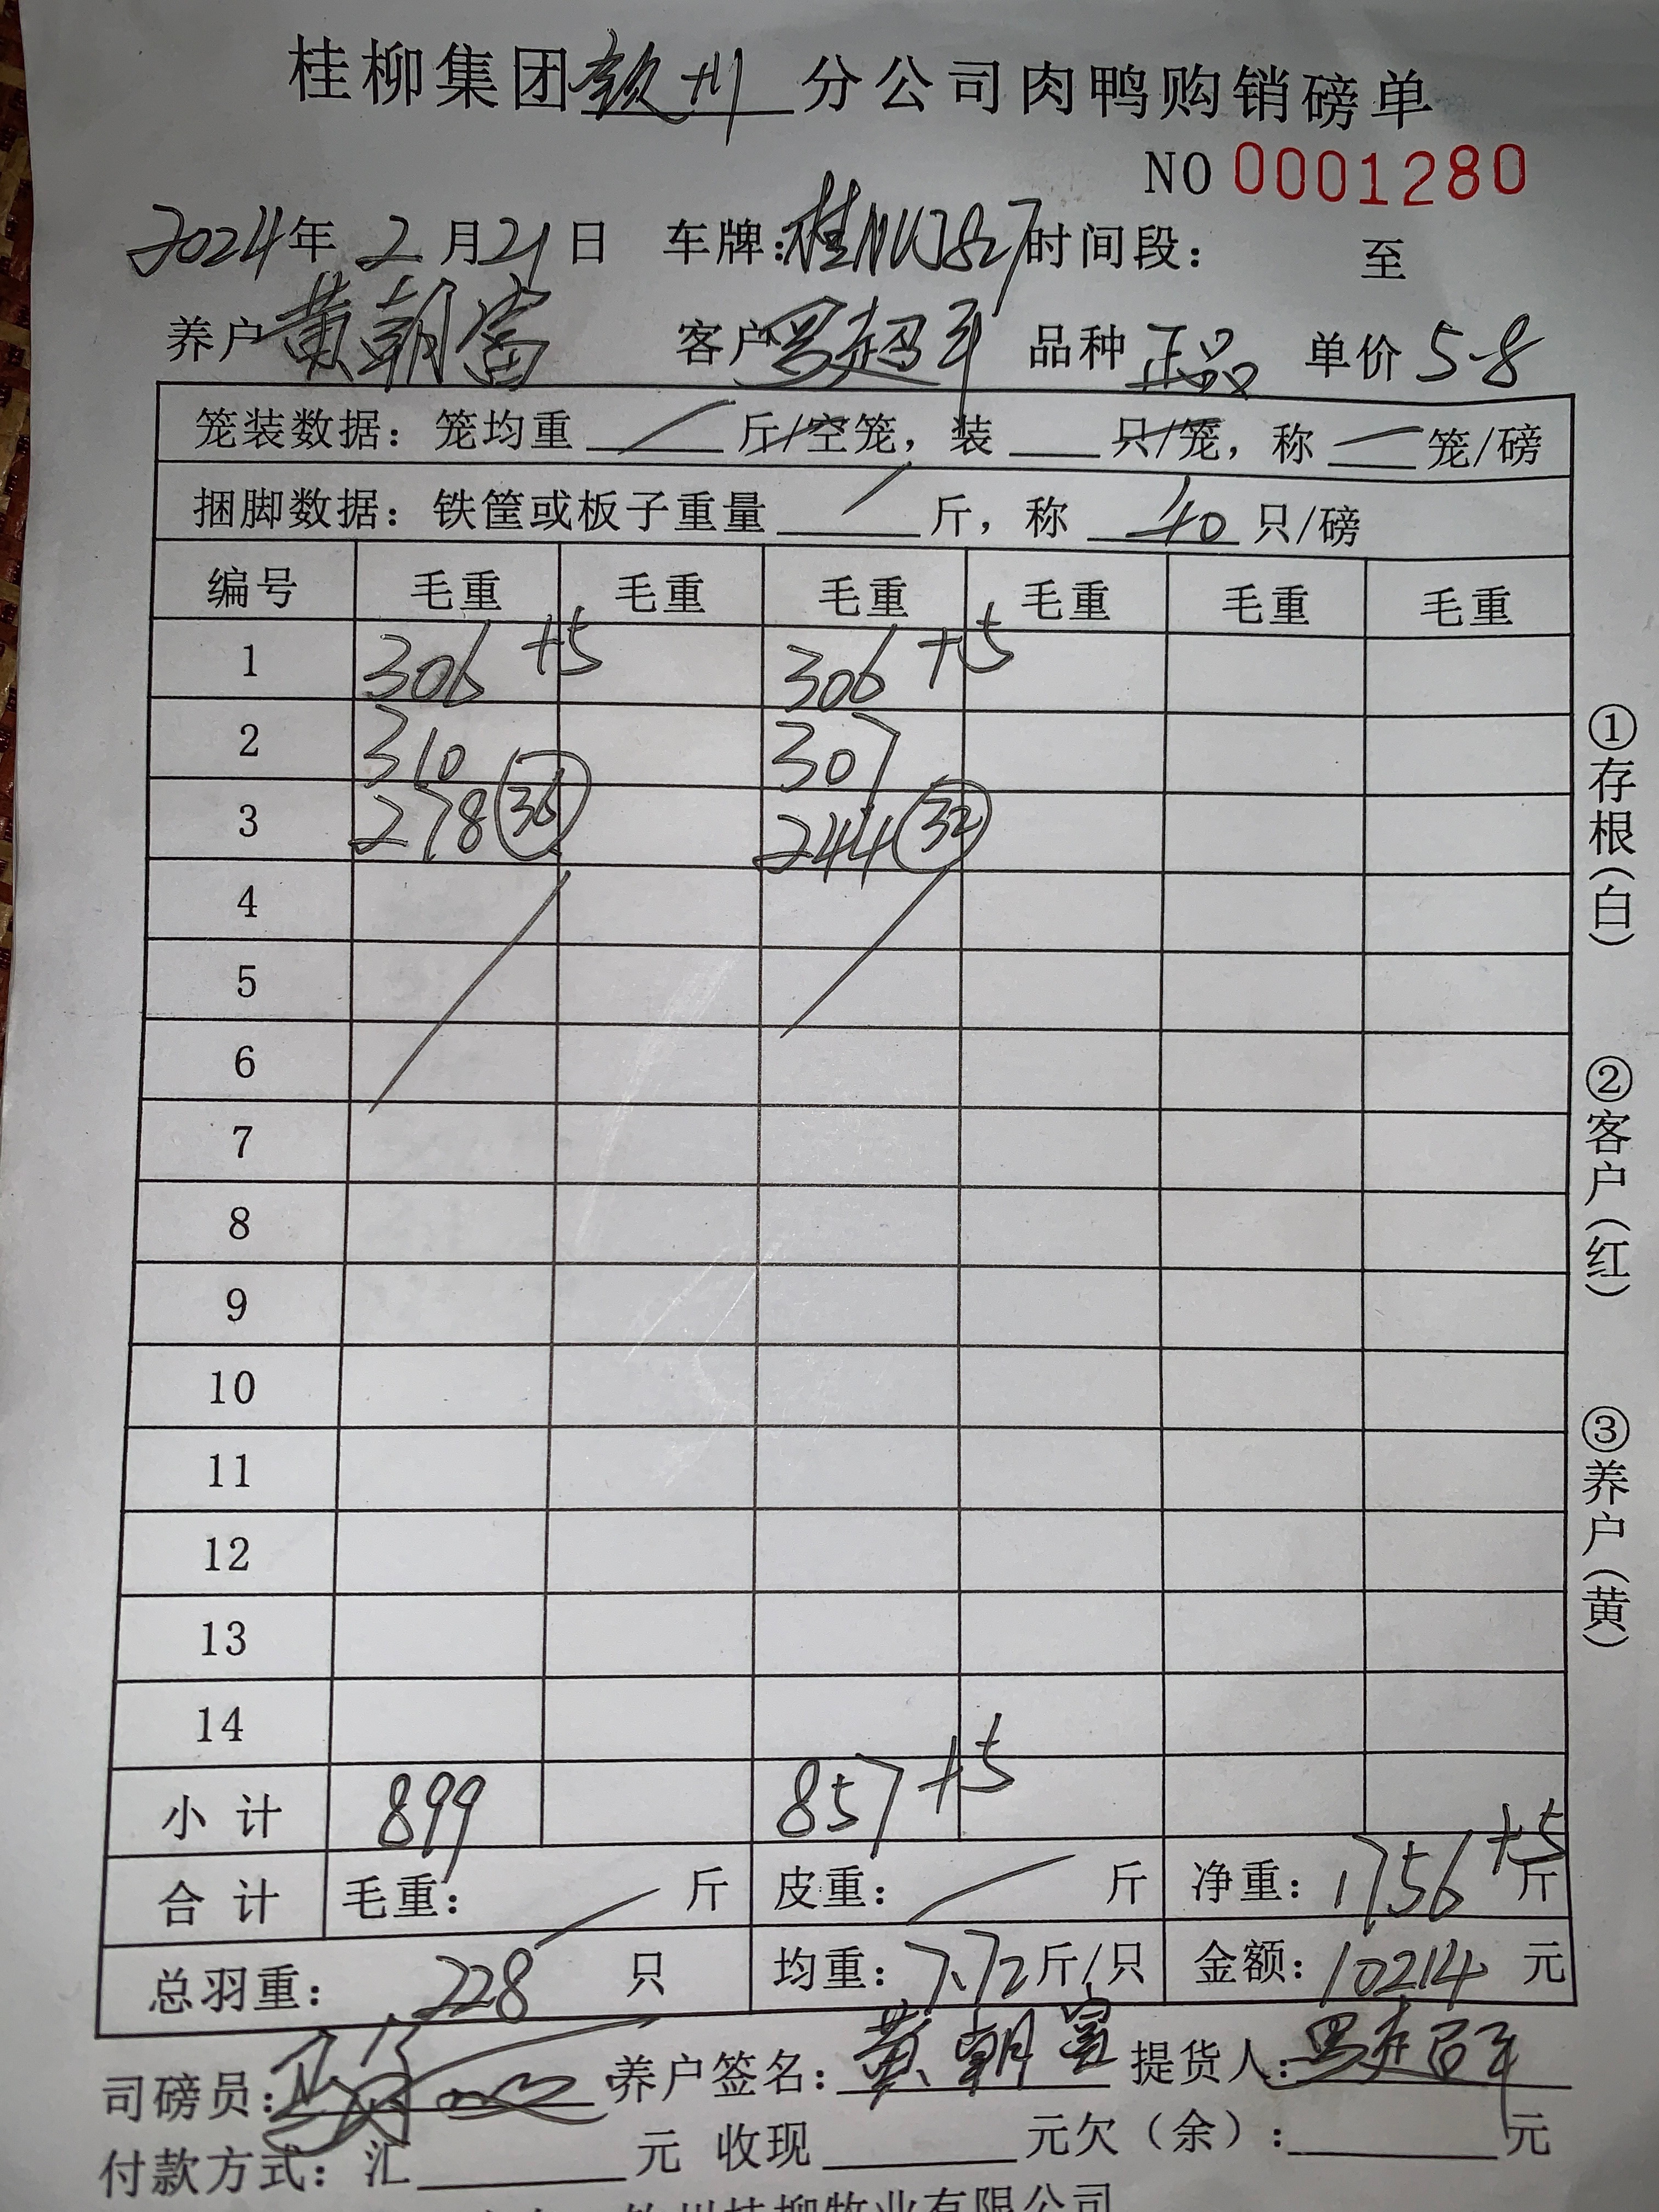 桂柳集团钦州分公司肉鸭购销磅单
NO 0001280
2024年 2月21日 车牌:桂NU3827时间段： 至
养户 黄朝富 客户 罗超平 品种 正品 单价 5-8
笼装数据：笼均重 斤/空笼，装 只/笼，称 笼/磅
捆脚数据：铁筐或板子重量 斤，称 40 只/磅
编号 毛重 毛重 毛重 毛重 毛重 毛重
1 306 +5 306 +5
2 310 307
3 278 36 244 32
4
5
6
7
8
9
10
11
12
13
14
小计 899 857 +5
合计 毛重： 斤 皮重： 斤 净重：1756 +5 斤
总羽重： 228 只 均重：7.72斤/只 金额：10214 元
司磅员： 养户签名：黄朝富 提货人：罗超平
付款方式：汇 元 收现 元欠（余）： 元
钦州桂柳牧业有限公司
①存根(白)
②客户(红)
③养户(黄)